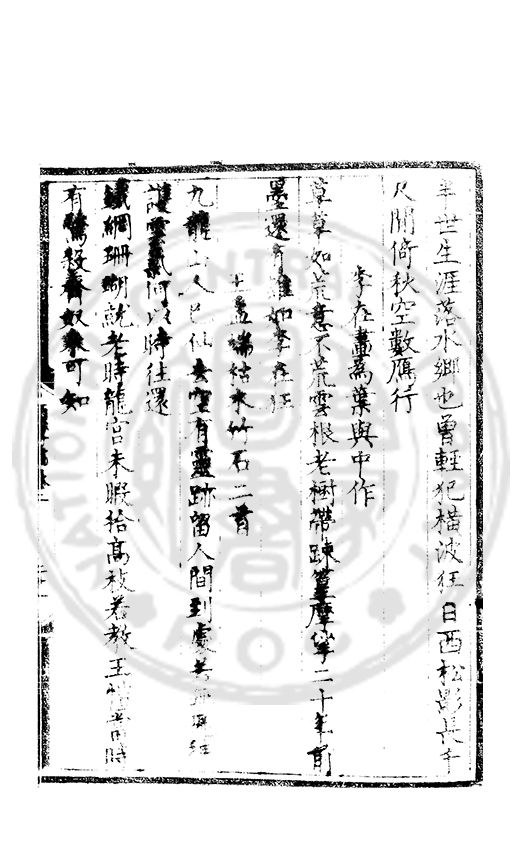 半世生涯落水鄉也曾輕犯橫波狂日西松影長千
尺閒倚秋空數鴈行
李在畫為葉與中作
草草如荒意不荒雲根老樹帶踈篁摩挲二十年前
墨還有誰如李在狂
王孟端枯木竹石二首
九龍山人已仙去空有靈跡留人間到處
護雲氣何以時往還
鐵網珊瑚就老時龍宮未暇拾高枝若教王愷當時
有擊殺齊奴未可知